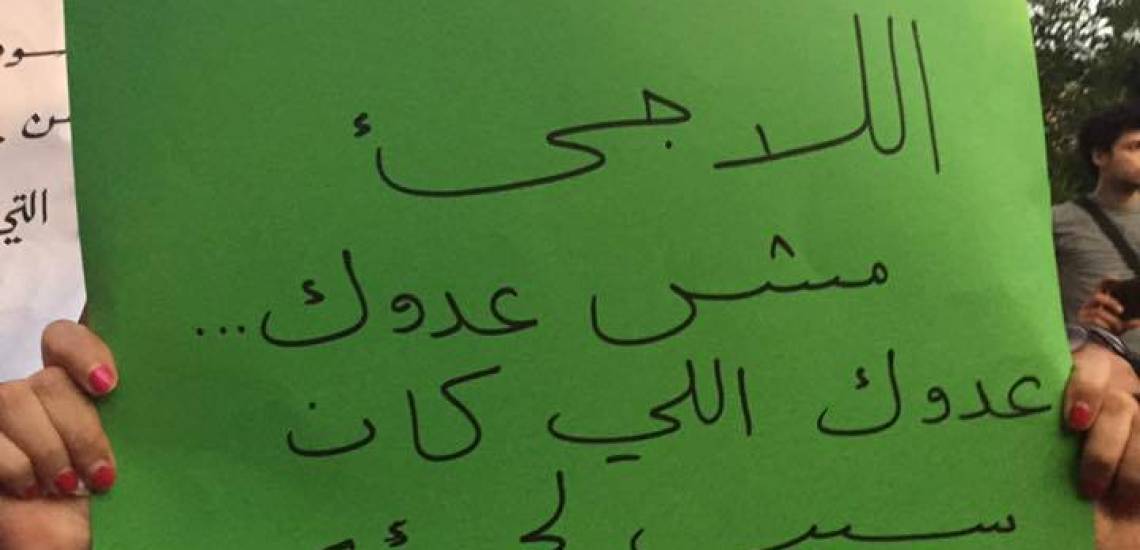 اللاجئ
مش عدوك...
عدوك اللي كان
سبب
التي